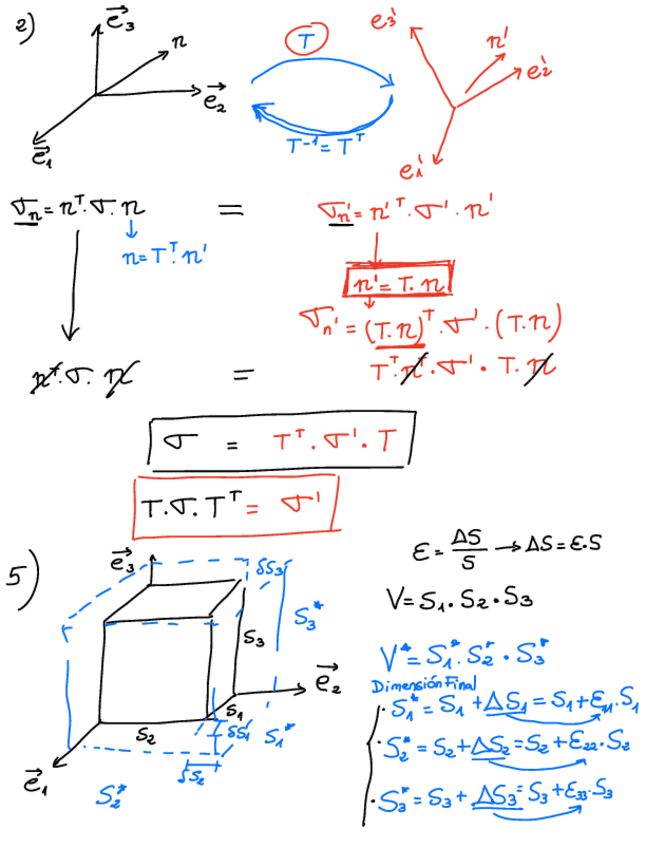 2)
e⃗₃
n
e⃗₂
e⃗₁
T
T⁻¹ = Tᵀ
e₃'
n'
e₂'
e₁'
σₙ = nᵀ · σ · n = σₙ' = n'ᵀ · σ' · n'
n = Tᵀ · n'
n' = T · n
σₙ' = (T · n)ᵀ · σ' · (T · n)
nᵀ · σ · n = Tᵀ · nᵀ · σ' · T · n
σ = Tᵀ · σ' · T
T · σ · Tᵀ = σ'
5)
e⃗₃
δS₃
S₃*
S₃
e⃗₂
S₁
δS₁
S₁*
S₂
δS₂
e⃗₁
S₂*
ε = ΔS/S → ΔS = ε · S
V = S₁ · S₂ · S₃
V* = S₁* · S₂* · S₃*
Dimensión Final
· S₁* = S₁ + ΔS₁ = S₁ + ε₁₁ · S₁
· S₂* = S₂ + ΔS₂ = S₂ + ε₂₂ · S₂
· S₃* = S₃ + ΔS₃ = S₃ + ε₃₃ · S₃